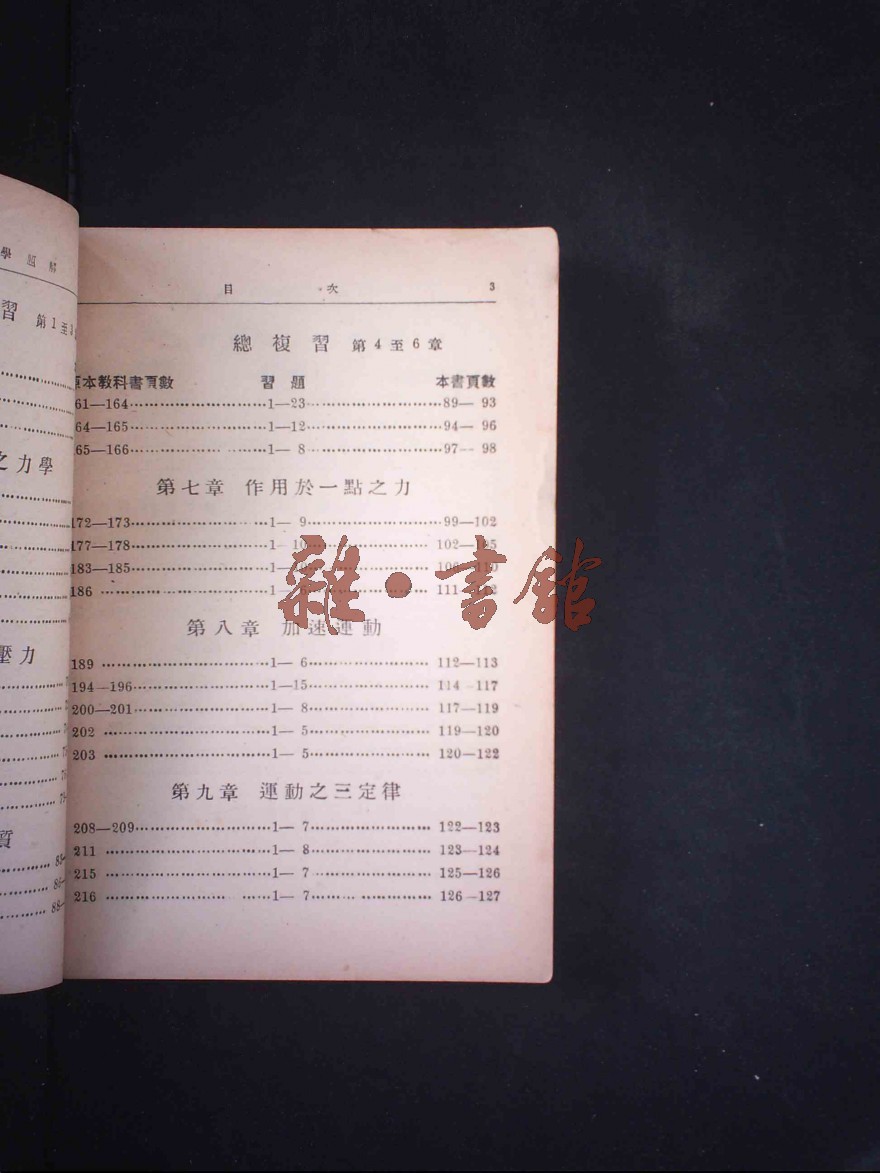 學 題 解
習 第1至3
之力學
壓力
質
83
86
88
目 次 3
總複習 第4至6章
原本教科書頁數 習題 本書頁數
61—164 1—23 89—93
64—165 1—12 94—96
65—166 1—8 97—98
第七章 作用於一點之力
172—173 1—9 99—102
177—178 1—10 102—105
183—185 106—110
186 1—6 111—112
第八章 加速運動
189 1—6 112—113
194—196 1—15 114—117
200—201 1—8 117—119
202 1—5 119—120
203 1—5 120—122
第九章 運動之三定律
208—209 1—7 122—123
211 1—8 123—124
215 1—7 125—126
216 1—7 126—127
雜·書館